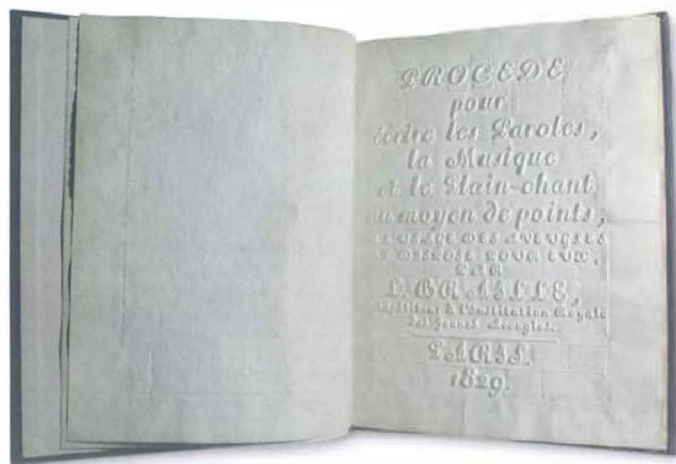 PROCEDE
pour
écrire les Paroles,
la Musique
et le Plain-chant
au moyen de points,
A L'USAGE DES AVEUGLES
ET DISPOSÉ POUR EUX,
PAR
L. BRAILLE,
Répétiteur à l'Institution Royale
des Jeunes Aveugles.
PARIS
1829.